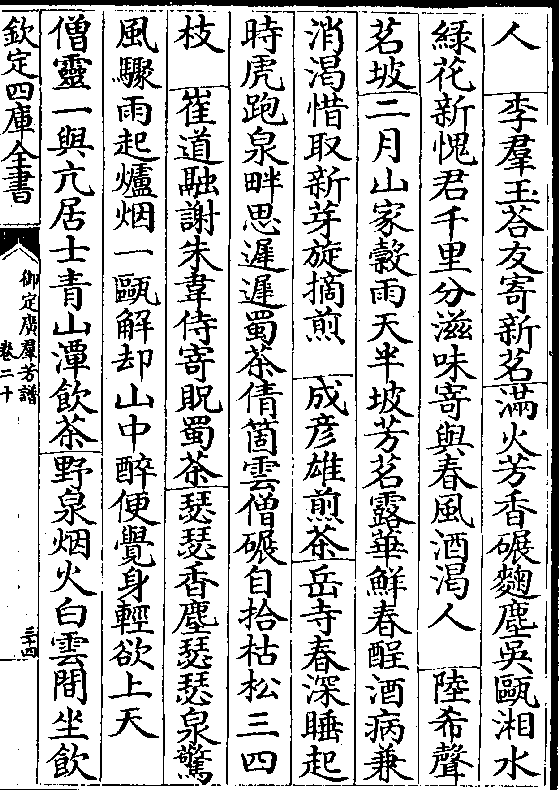 人　李羣玉荅友寄新茗滿火芳香碾麴塵吳甌湘水
綠花新愧君千里分滋味寄與春風酒渴人　陸希聲
茗坡二月山家穀雨天半坡芳茗露華鮮春酲酒病兼
消渴惜取新芽旋摘煎　成彦雄煎茶岳寺春深睡起
時虎跑泉畔思遲遲蜀茶倩箇雲僧碾自拾枯松三四
枝　崔道融謝朱韋侍寄貺蜀茶瑟瑟香塵瑟瑟泉驚
風驟雨起爐烟一甌解却山中醉便覺身輕欲上天
僧靈一與亢居士青山潭飲茶野泉烟火白雲間坐飲
欽定四庫全書
御定廣羣芳譜
卷二十
三十四